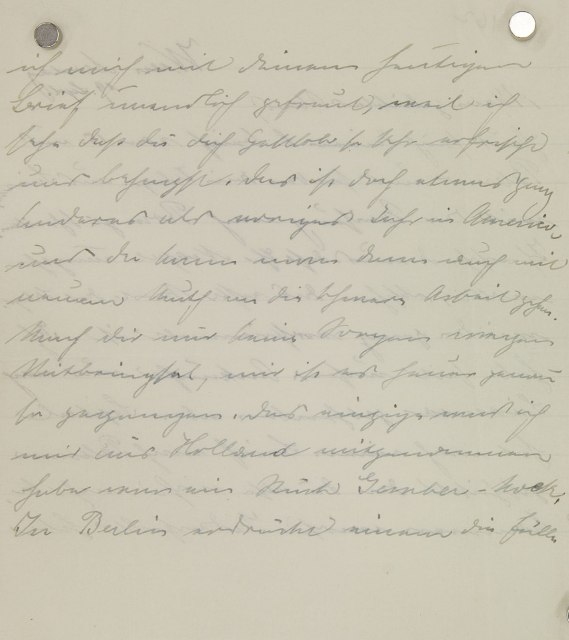 ich mich mit deinem heutigen
Brief unendlich gefreut, weil ich
sehe daß du dich Gottlob so sehr erfrischt
und behagst. Das ist doch etwas ganz
anderes als voriges Jahr in America,
und da kann man dann auch mit
neuem Muth an die schwere Arbeit gehen.
Mach dir nur keine Sorgen wegen
Mitbringsel, mir ist es heuer genau
so gegangen. Das einzige was ich
mir aus Holland mitgenommen
habe war ein Stück Gember-koek,
In Berlin erdrückt einem die Fülle